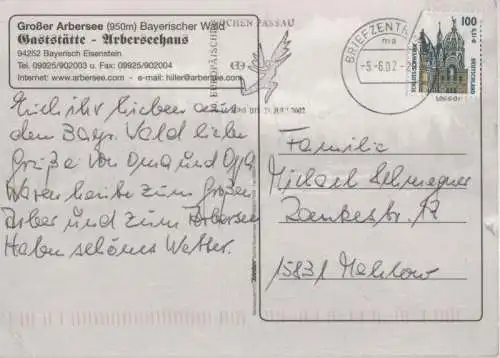 Großer Arbersee (950m) Bayerischer Wald
Gaststätte - Arberseehaus
94252 Bayerisch Eisenstein
Tel. 09925/902003 u. Fax: 09925/902004
Internet: www.arbersee.com - e-mail: hiller@arbersee.com
EUROPÄISCHE WOCHEN PASSAU
JULI 2002
BRIEFZENTRUM
ma
-5.-6.02.-2
100
0,51 €
DEUTSCHLAND
SCHLOSS SCHWERIN
Euch ihr lieben aus
dem Bayr. Wald liebe
Grüße von Oma und Opa
Waren heute zum Großen
Arber und zum Arbersee
Haben schönes Wetter.
Familie
Michael
15831 Mahlow